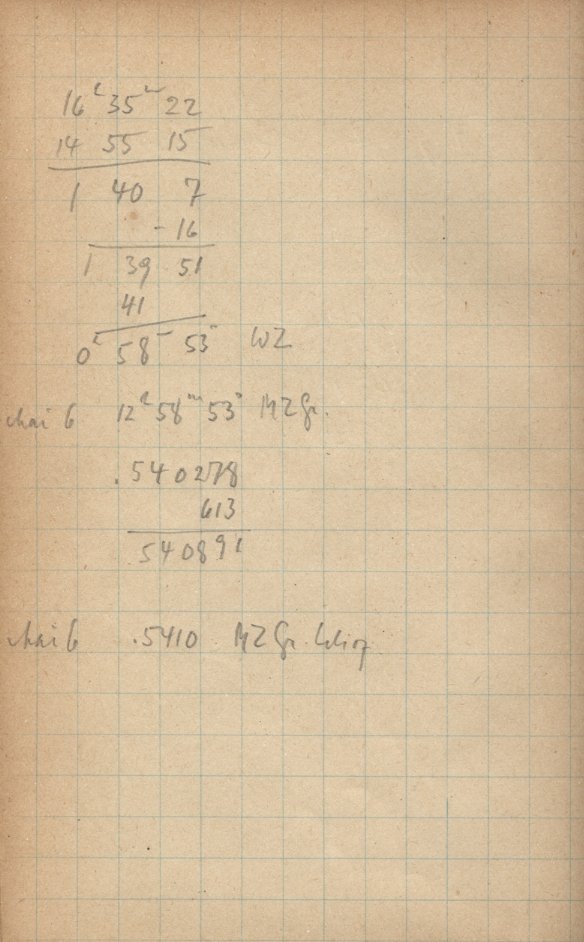 16ʰ 35ᵐ 22
14 55 15
1 40 7
- 16
1 39 51
41
0ʰ 58ᵐ 53ˢ WZ
Mai 6 12ʰ 58ᵐ 53ˢ MZGr.
.540278
613
540891
Mai 6 .5410 MZGr.